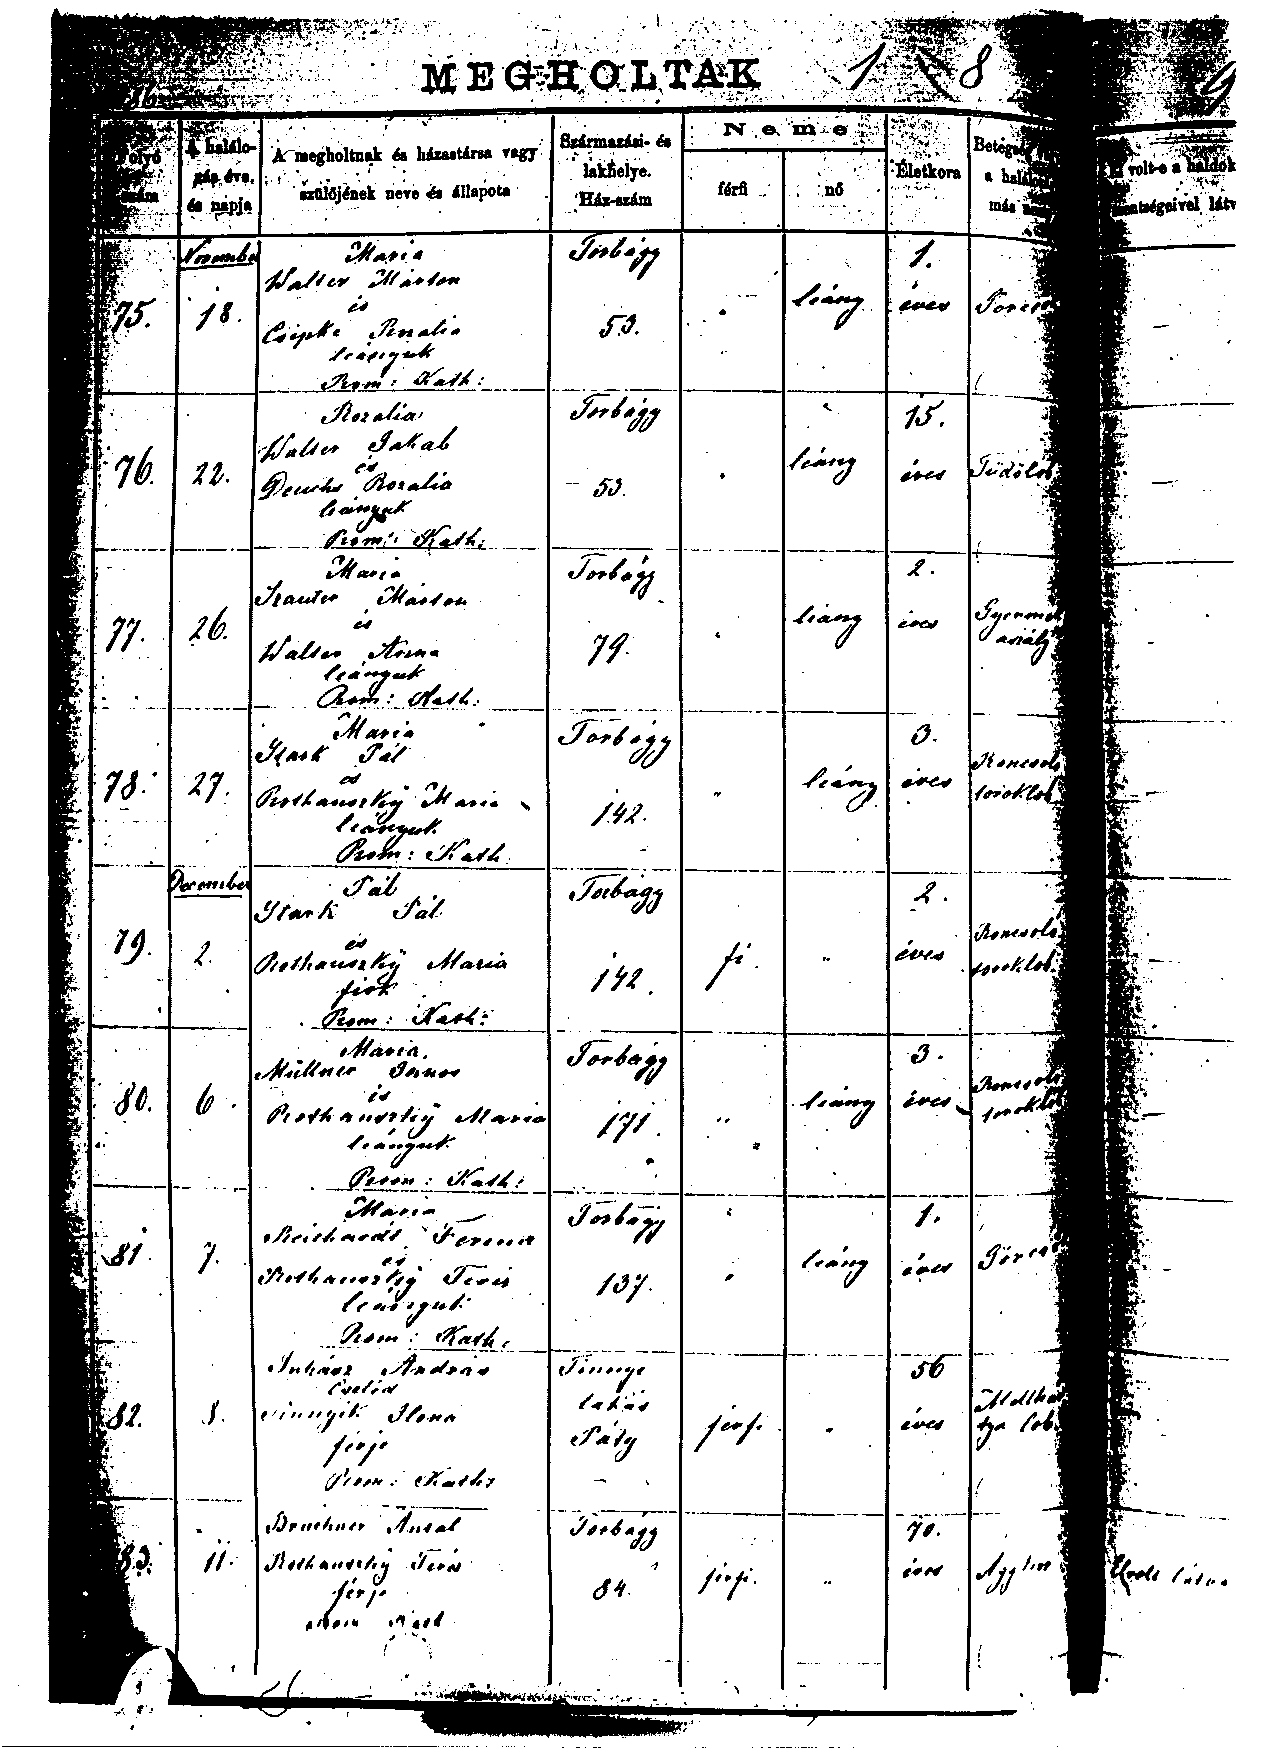 MEGHOLTAK 1 8
Folyó szám
A halálozás éve és napja
A megholtnak és házastársa vagy szülőjének neve és állapota
Származási- és lakhelye. Ház-szám
Neme
férfi
nő
Életkora
a halál
más
volt-e a haldok
November
75. 18.
Maria
Walter Márton
és
Csipke Rozalia
leányuk
Rom: Kath:
Torbágy
53.
leány
1.
éves
76. 22.
Rozalia
Walter Jakab
és
Deuchs Rozalia
leányuk
Rom: Kath:
Torbágy
53.
leány
15.
éves
77. 26.
Maria
Márton
és
Walter Anna
leányuk
Rom: Kath:
Torbágy
79.
leány
2.
éves
78. 27.
Maria
Stark Pál
és
Rothanszky Maria
leányuk
Rom: Kath
Torbágy
142.
leány
3.
éves
Roncsoló
toroklob
December
79. 2.
Pál
Stark Pál
és
Rothanszky Maria
fiok
Rom: Kath:
Torbágy
142.
fi.
2.
éves
Roncsoló
toroklob.
80. 6.
Maria.
Müllner Janos
és
Rothanszky Maria
leányuk
Rom: Kath:
Torbágy
171.
leány
3.
éves
Roncsoló
toroklob
81. 7.
Maria
Reichardt Ferenc
és
Rothanszky Teréz
leányuk
Rom: Kath.
Torbágy
137.
leány
1.
éves
82. 8.
Juhász András
cseléd
Ilona
férje
Rom: Kath:
Tinnye
lakás
Páty
férfi.
56
éves
lob.
83. 11.
Bruckner Antal
Rothanszky Teréz
férje
Rom Kath
Torbágy
84.
férfi.
70.
éves